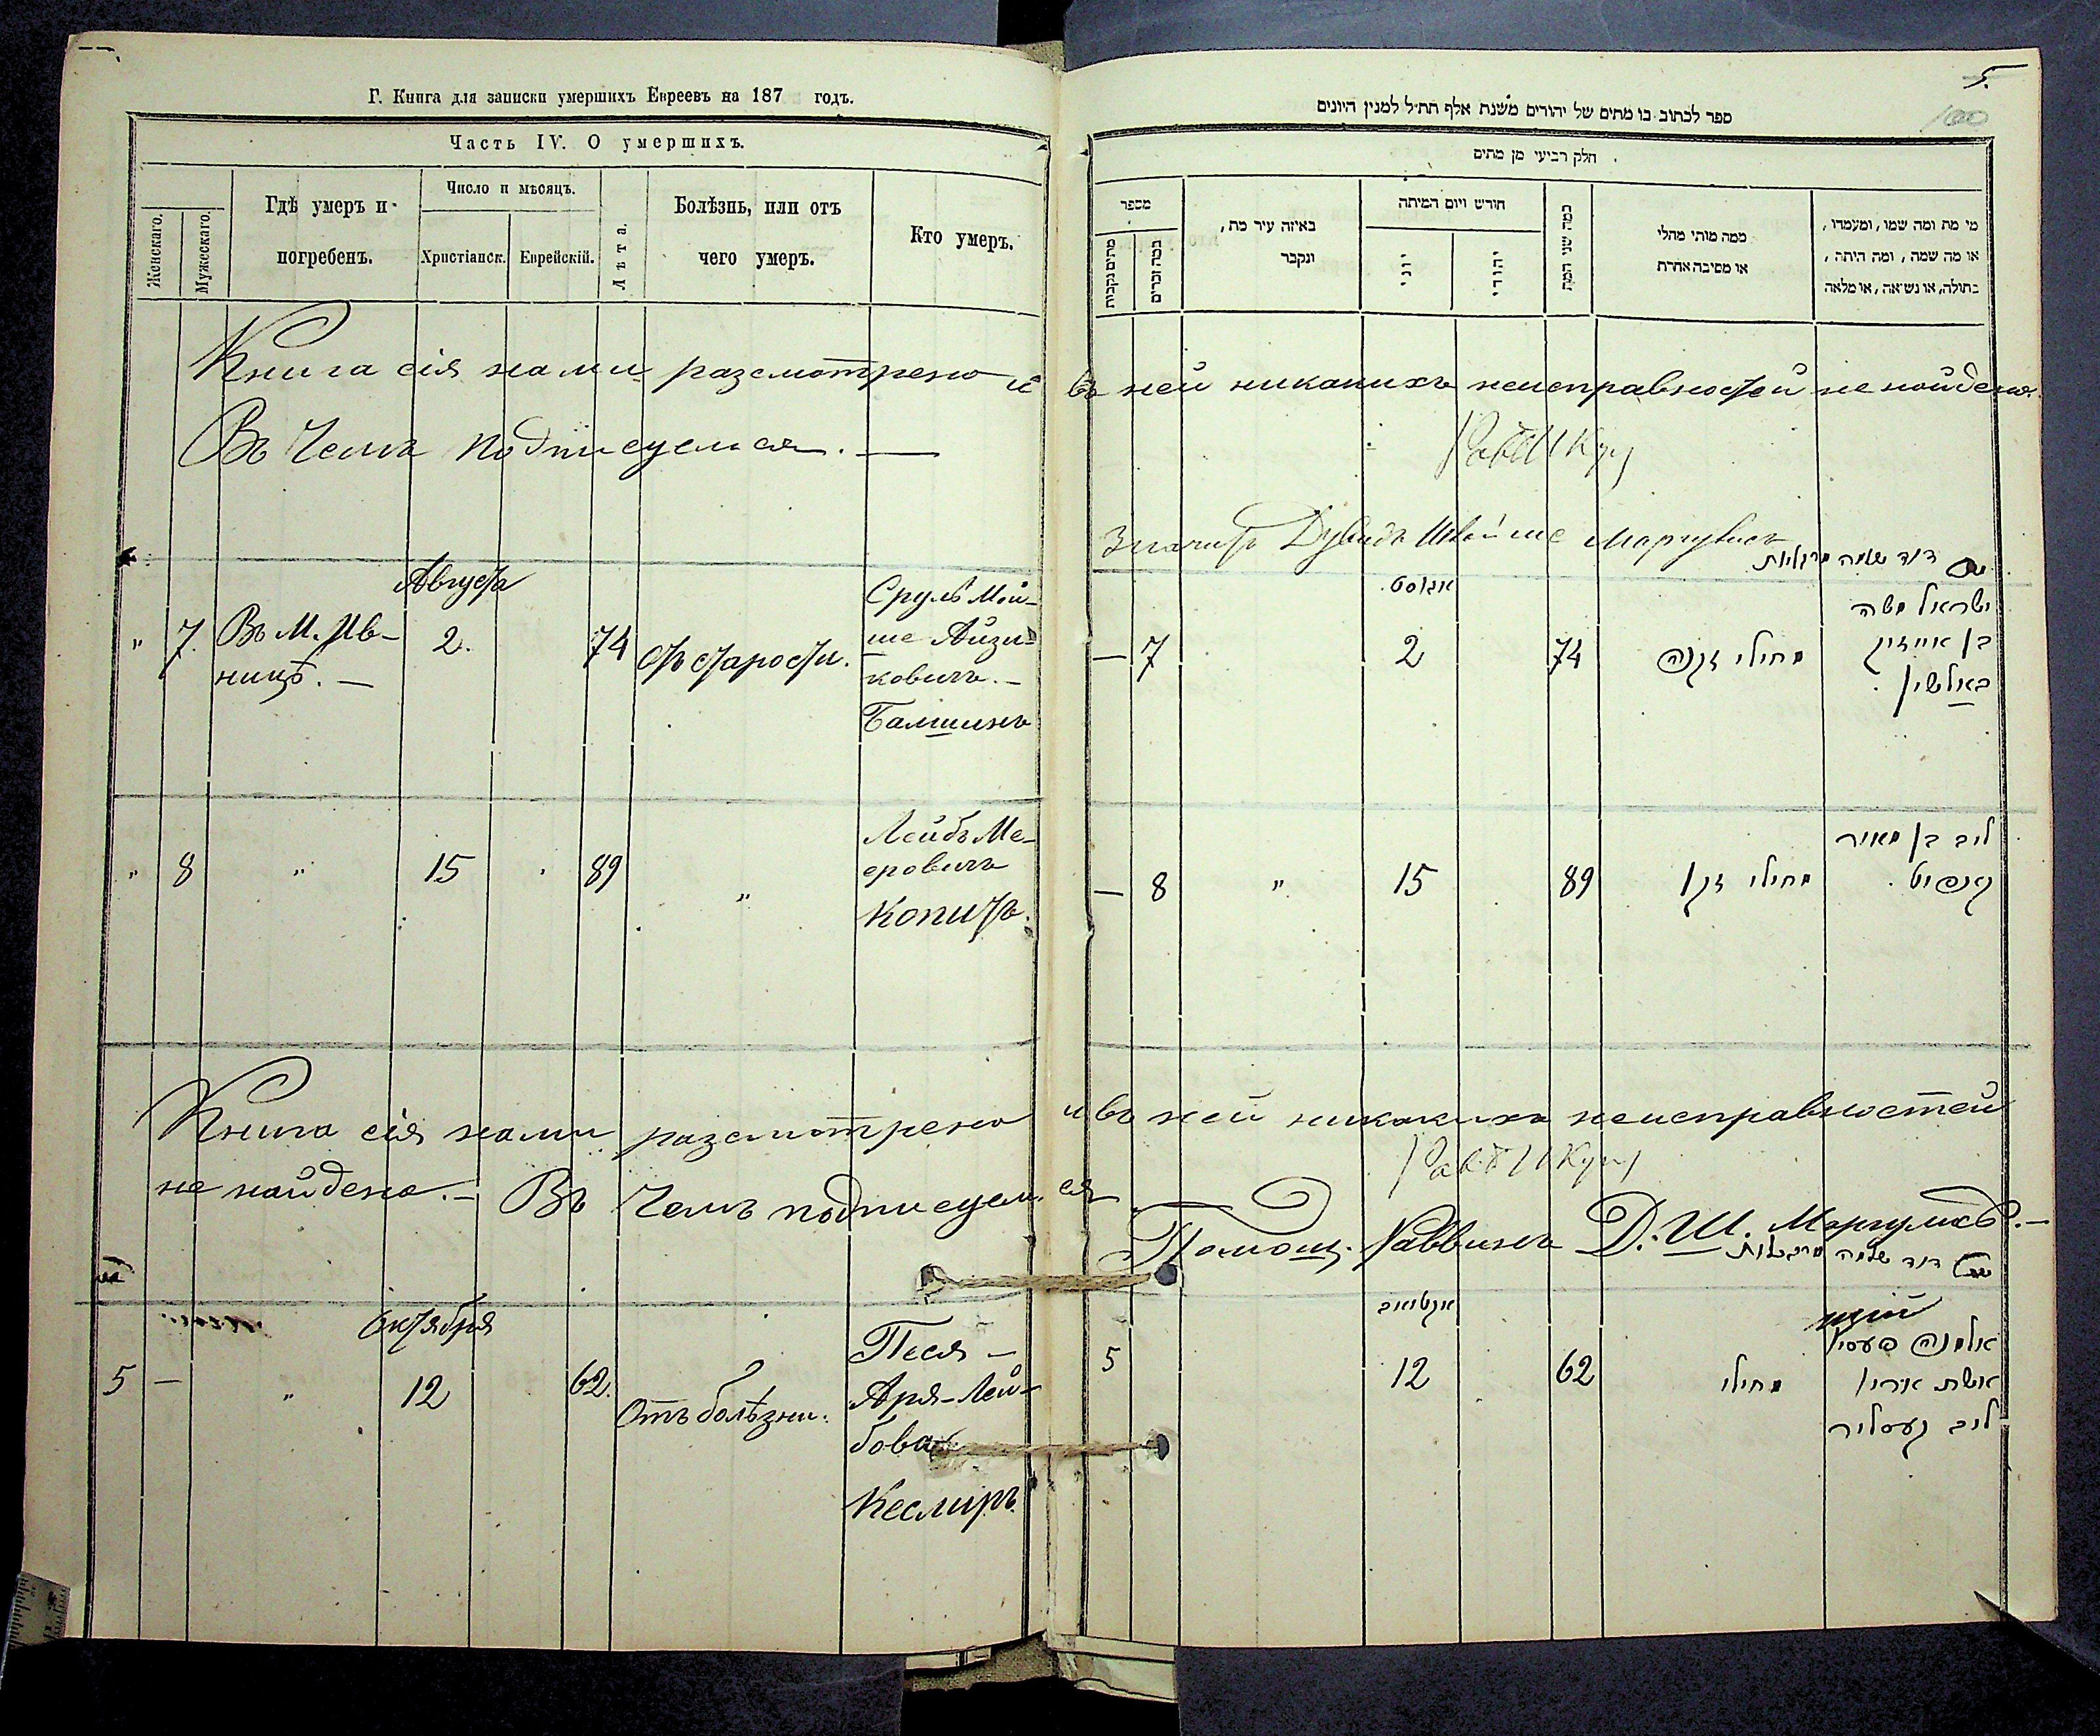 Г. Книга для записки умершихъ Евреевъ на 187 годъ.
Часть IV. О умершихъ.
Женскаго.
Мужескаго.
Гдѣ умеръ и
погребенъ.
Число и мѣсяцъ.
Христіанск.
Еврейскій.
Лѣта.
Болѣзнь, или отъ
чего умеръ.
Кто умеръ.
Книга сія нами разсмотрено и
Въ чемъ подписуемся. —
Августа
" 7. Въ М. Ив-
ницѣ. —
2.
74
Отъ старости.
Сруль Мой-
ше Айзи-
ковичъ. —
Балшинъ
" 8 " 15 " 89 "
Лейбъ Ме-
еровичъ
Копитъ.
Книга сія нами разсмотрено
не найдено. — Въ чемъ подписуем
Октября
5 — " 12 62.
Отъ болѣзни.
Песя —
Аря-Лей-
бова
Кеслиръ.
5.
100
ספר לכתוב בו מתים של יהודים משנת אלף תת״ל למנין היונים
חלק רביעי מן מתים
מספר
כמה נקבות מתים
כמה זכרים
באיזה עיר מת,
ונקבר
חודש ויום המיתה
יוני
יהודי
כמה שני המת
ממה מותי מחלי
או מסיבה אחרת
מי מת ומה שמו, ומעמדו,
או מה שמה, ומה היתה,
בתולה, או נשואה, או מלאה
въ ней никакихъ неисправностей не найдено.
Дувидъ
דוד שלמה מרגליות
אגוסט
— 7 2 74
מחולי זקנה
ישראל משה
בן אייזיק
באלשין
— 8 " 15 89
מחולי זקן
ליב בן מאיר
קאפיט
и въ ней никакихъ неисправностей
ся
Помощ. Раввинъ Д. Ш. Маргулисъ. —
דוד שלמה מרגליות
אקטואב
5 12 62
מחולי
אלמנה פעסי
אשת ארי
ליב קעסליר